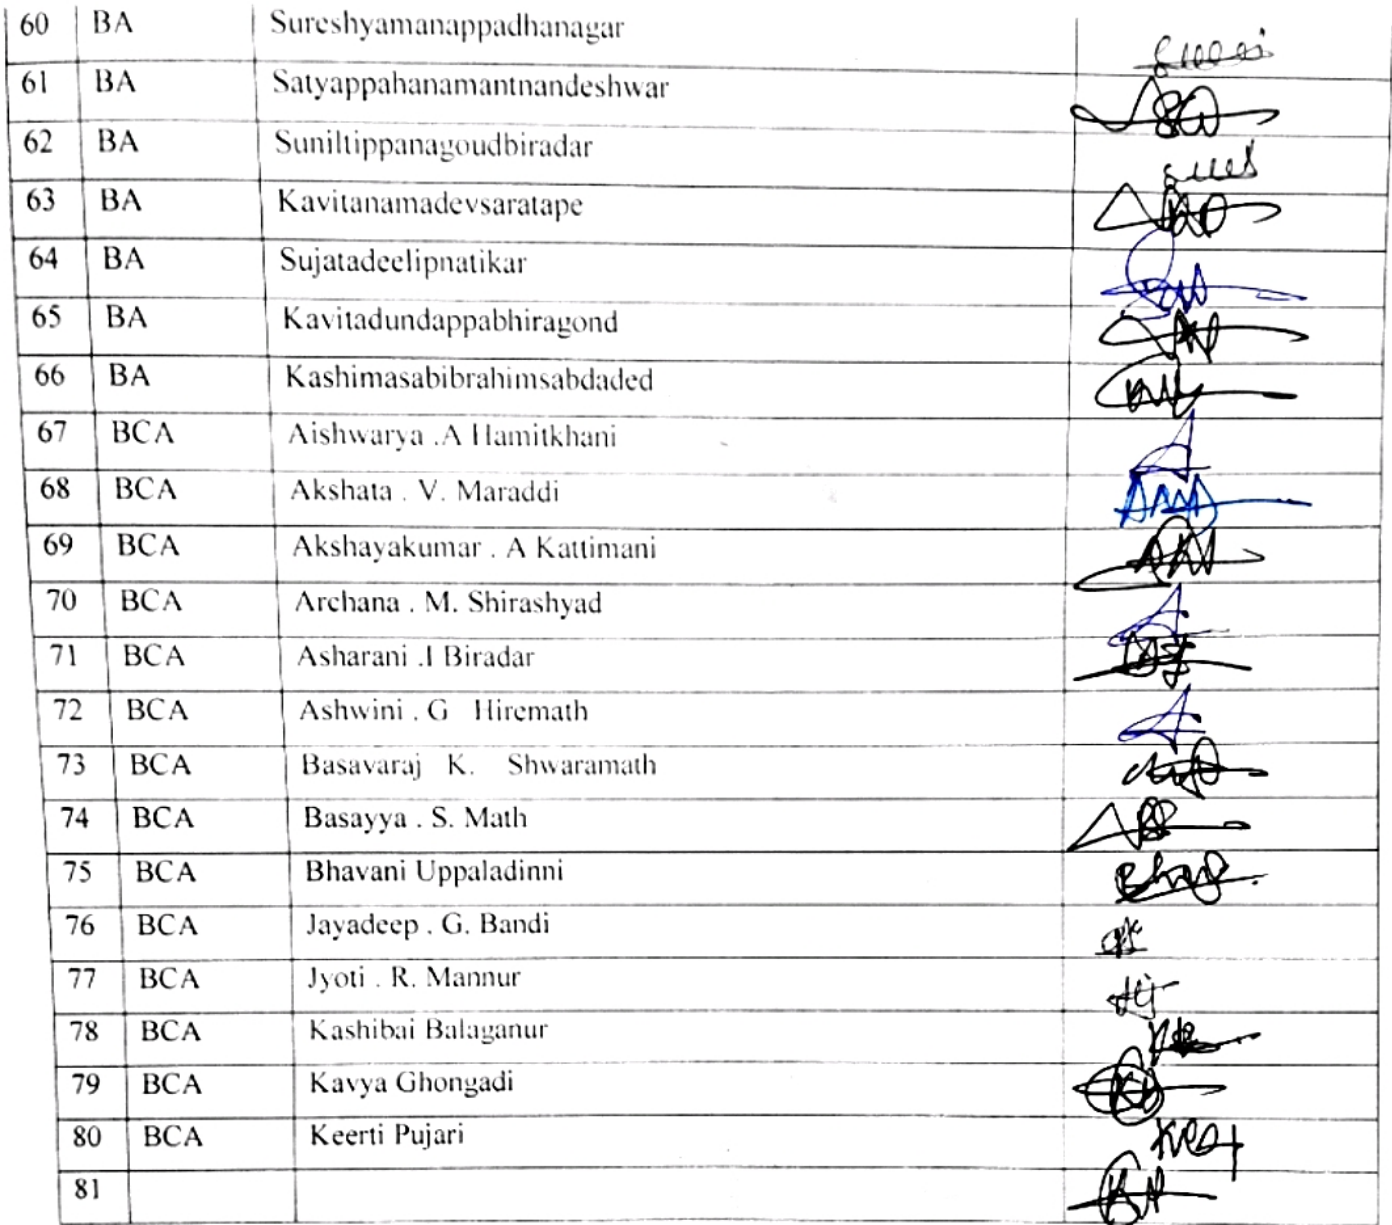 60 BA Sureshyamanappadhanagar
61 BA Satyappahanamantnandeshwar
62 BA Suniltippanagoudbiradar
63 BA Kavitanamadevsaratape
64 BA Sujatadeelipnatikar
65 BA Kavitadundappabhiragond
66 BA Kashimasabibrahimsabdaded
67 BCA Aishwarya .A Hamitkhani
68 BCA Akshata . V. Maraddi
69 BCA Akshayakumar . A Kattimani
70 BCA Archana . M. Shirashyad
71 BCA Asharani .I Biradar
72 BCA Ashwini . G Hiremath
73 BCA Basavaraj K. Shwaramath
74 BCA Basayya . S. Math
75 BCA Bhavani Uppaladinni
76 BCA Jayadeep . G. Bandi
77 BCA Jyoti . R. Mannur
78 BCA Kashibai Balaganur
79 BCA Kavya Ghongadi
80 BCA Keerti Pujari
81